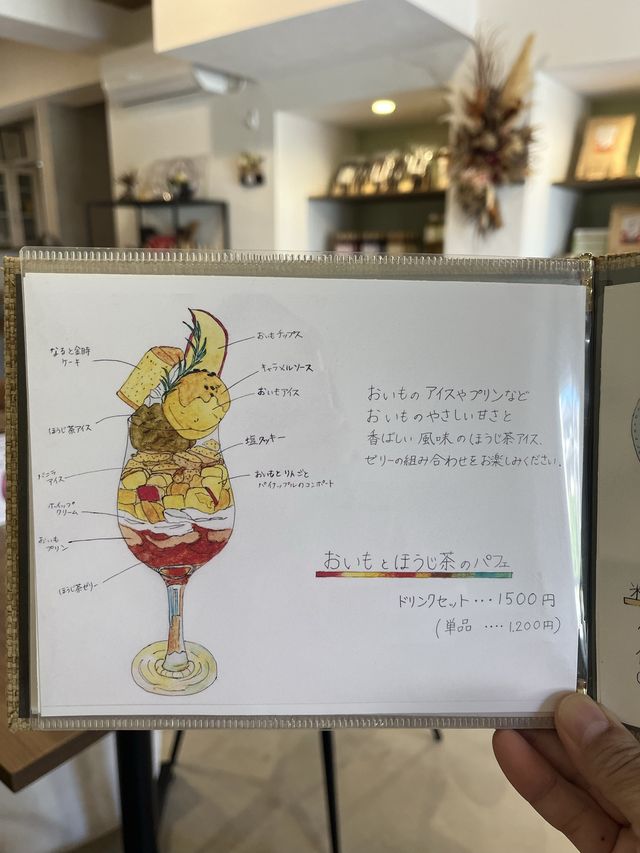 なると金時
ケーキ
ほうじ茶アイス
バニラ
アイス
ホイップ
クリーム
おいも
プリン
ほうじ茶ゼリー
おいもチップス
キャラメルソース
おいもアイス
塩クッキー
おいもとりんごと
パイナップルのコンポート
おいものアイスやプリンなど
おいものやさしい甘さと
香ばしい風味のほうじ茶アイス、
ゼリーの組み合わせをお楽しみください。
おいもとほうじ茶のパフェ
ドリンクセット・・・1500円
(単品 ・・・・1,200円)